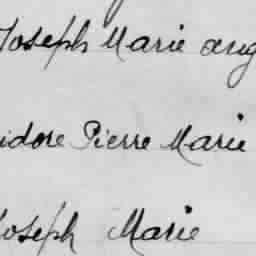 Joseph Marie ang
idore Pierre Marie
Joseph Marie